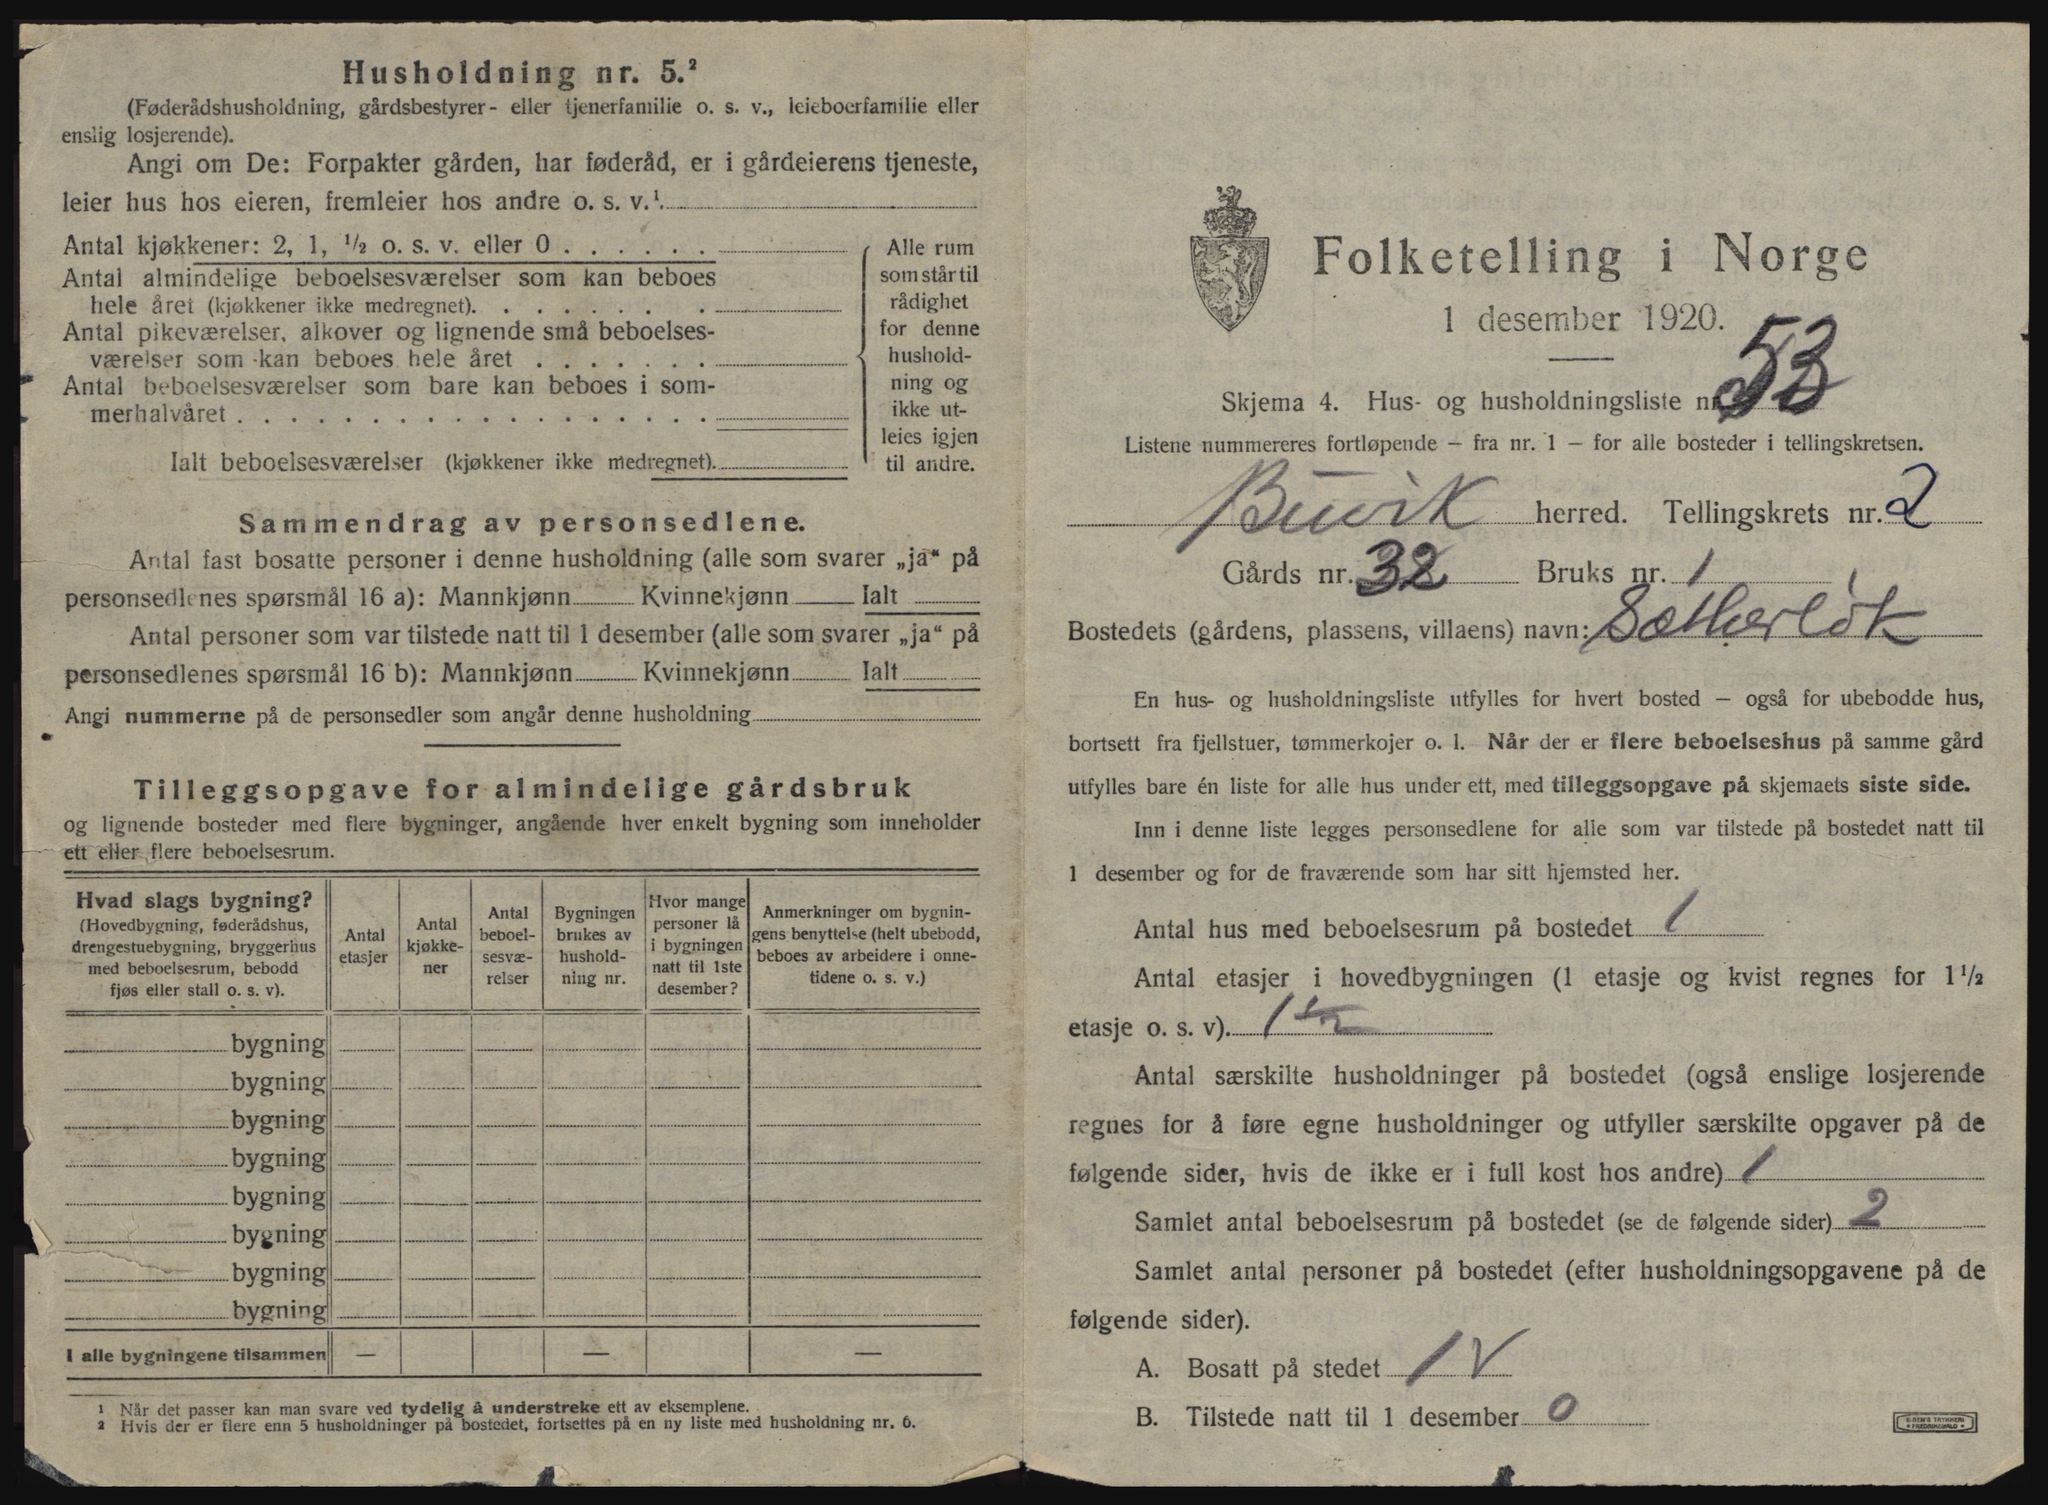 Husholdning nr. 5.²
(Føderådshusholdning, gårdsbestyrer- eller tjenerfamilie o. s. v., leieboerfamilie eller
enslig losjerende).
Angi om De: Forpakter gården, har føderåd, er i gårdeierens tjeneste,
leier hus hos eieren, fremleier hos andre o. s. v.¹
Antal kjøkkener: 2, 1, ½ o. s. v. eller 0 . . . . . .
Antal almindelige beboelsesværelser som kan beboes
hele året (kjøkkener ikke medregnet). . . . . . . .
Antal pikeværelser, alkover og lignende små beboelses-
værelser som kan beboes hele året . . . . . . .
Antal beboelsesværelser som bare kan beboes i som-
merhalvåret . . . . . . . . . . . . . . . . . .
Ialt beboelsesværelser (kjøkkener ikke medregnet).
Alle rum
som står til
rådighet
for denne
hushold-
ning og
ikke ut-
leies igjen
til andre.
Sammendrag av personsedlene.
Antal fast bosatte personer i denne husholdning (alle som svarer „ja“ på
personsedlenes spørsmål 16 a): Mannkjønn Kvinnekjønn Ialt
Antal personer som var tilstede natt til 1 desember (alle som svarer „ja“ på
personsedlenes spørsmål 16 b): Mannkjønn Kvinnekjønn Ialt
Angi nummerne på de personsedler som angår denne husholdning
Tilleggsopgave for almindelige gårdsbruk
og lignende bosteder med flere bygninger, angående hver enkelt bygning som inneholder
ett eller flere beboelsesrum.
Hvad slags bygning?
(Hovedbygning, føderådshus,
drengestuebygning, bryggerhus
med beboelsesrum, bebodd
fjøs eller stall o. s. v).
Antal
etasjer
Antal
kjøkke-
ner
Antal
beboel-
sesvæ-
relser
Bygningen
brukes av
hushold-
ning nr.
Hvor mange
personer lå
i bygningen
natt til 1ste
desember?
Anmerkninger om bygnin-
gens benyttelse (helt ubebodd,
beboes av arbeidere i onne-
tidene o. s. v.)
bygning
bygning
bygning
bygning
bygning
bygning
bygning
bygning
I alle bygningene tilsammen — — —
¹ Når det passer kan man svare ved tydelig å understreke ett av eksemplene.
² Hvis der er flere enn 5 husholdninger på bostedet, fortsettes på en ny liste med husholdning nr. 6.
Folketelling i Norge
1 desember 1920.
Skjema 4. Hus- og husholdningsliste nr. 53
Listene nummereres fortløpende — fra nr. 1 — for alle bosteder i tellingskretsen.
Buvik herred. Tellingskrets nr. 2
Gårds nr. 32 Bruks nr. 1
Bostedets (gårdens, plassens, villaens) navn:
En hus- og husholdningsliste utfylles for hvert bosted — også for ubebodde hus,
bortsett fra fjellstuer, tømmerkojer o. l. Når der er flere beboelseshus på samme gård
utfylles bare én liste for alle hus under ett, med tilleggsopgave på skjemaets siste side.
Inn i denne liste legges personsedlene for alle som var tilstede på bostedet natt til
1 desember og for de fraværende som har sitt hjemsted her.
Antal hus med beboelsesrum på bostedet 1
Antal etasjer i hovedbygningen (1 etasje og kvist regnes for 1½
etasje o. s. v). 1½
Antal særskilte husholdninger på bostedet (også enslige losjerende
regnes for å føre egne husholdninger og utfyller særskilte opgaver på de
følgende sider, hvis de ikke er i full kost hos andre) 1
Samlet antal beboelsesrum på bostedet (se de følgende sider) 2
Samlet antal personer på bostedet (efter husholdningsopgavene på de
følgende sider).
A. Bosatt på stedet 1 V
B. Tilstede natt til 1 desember 0